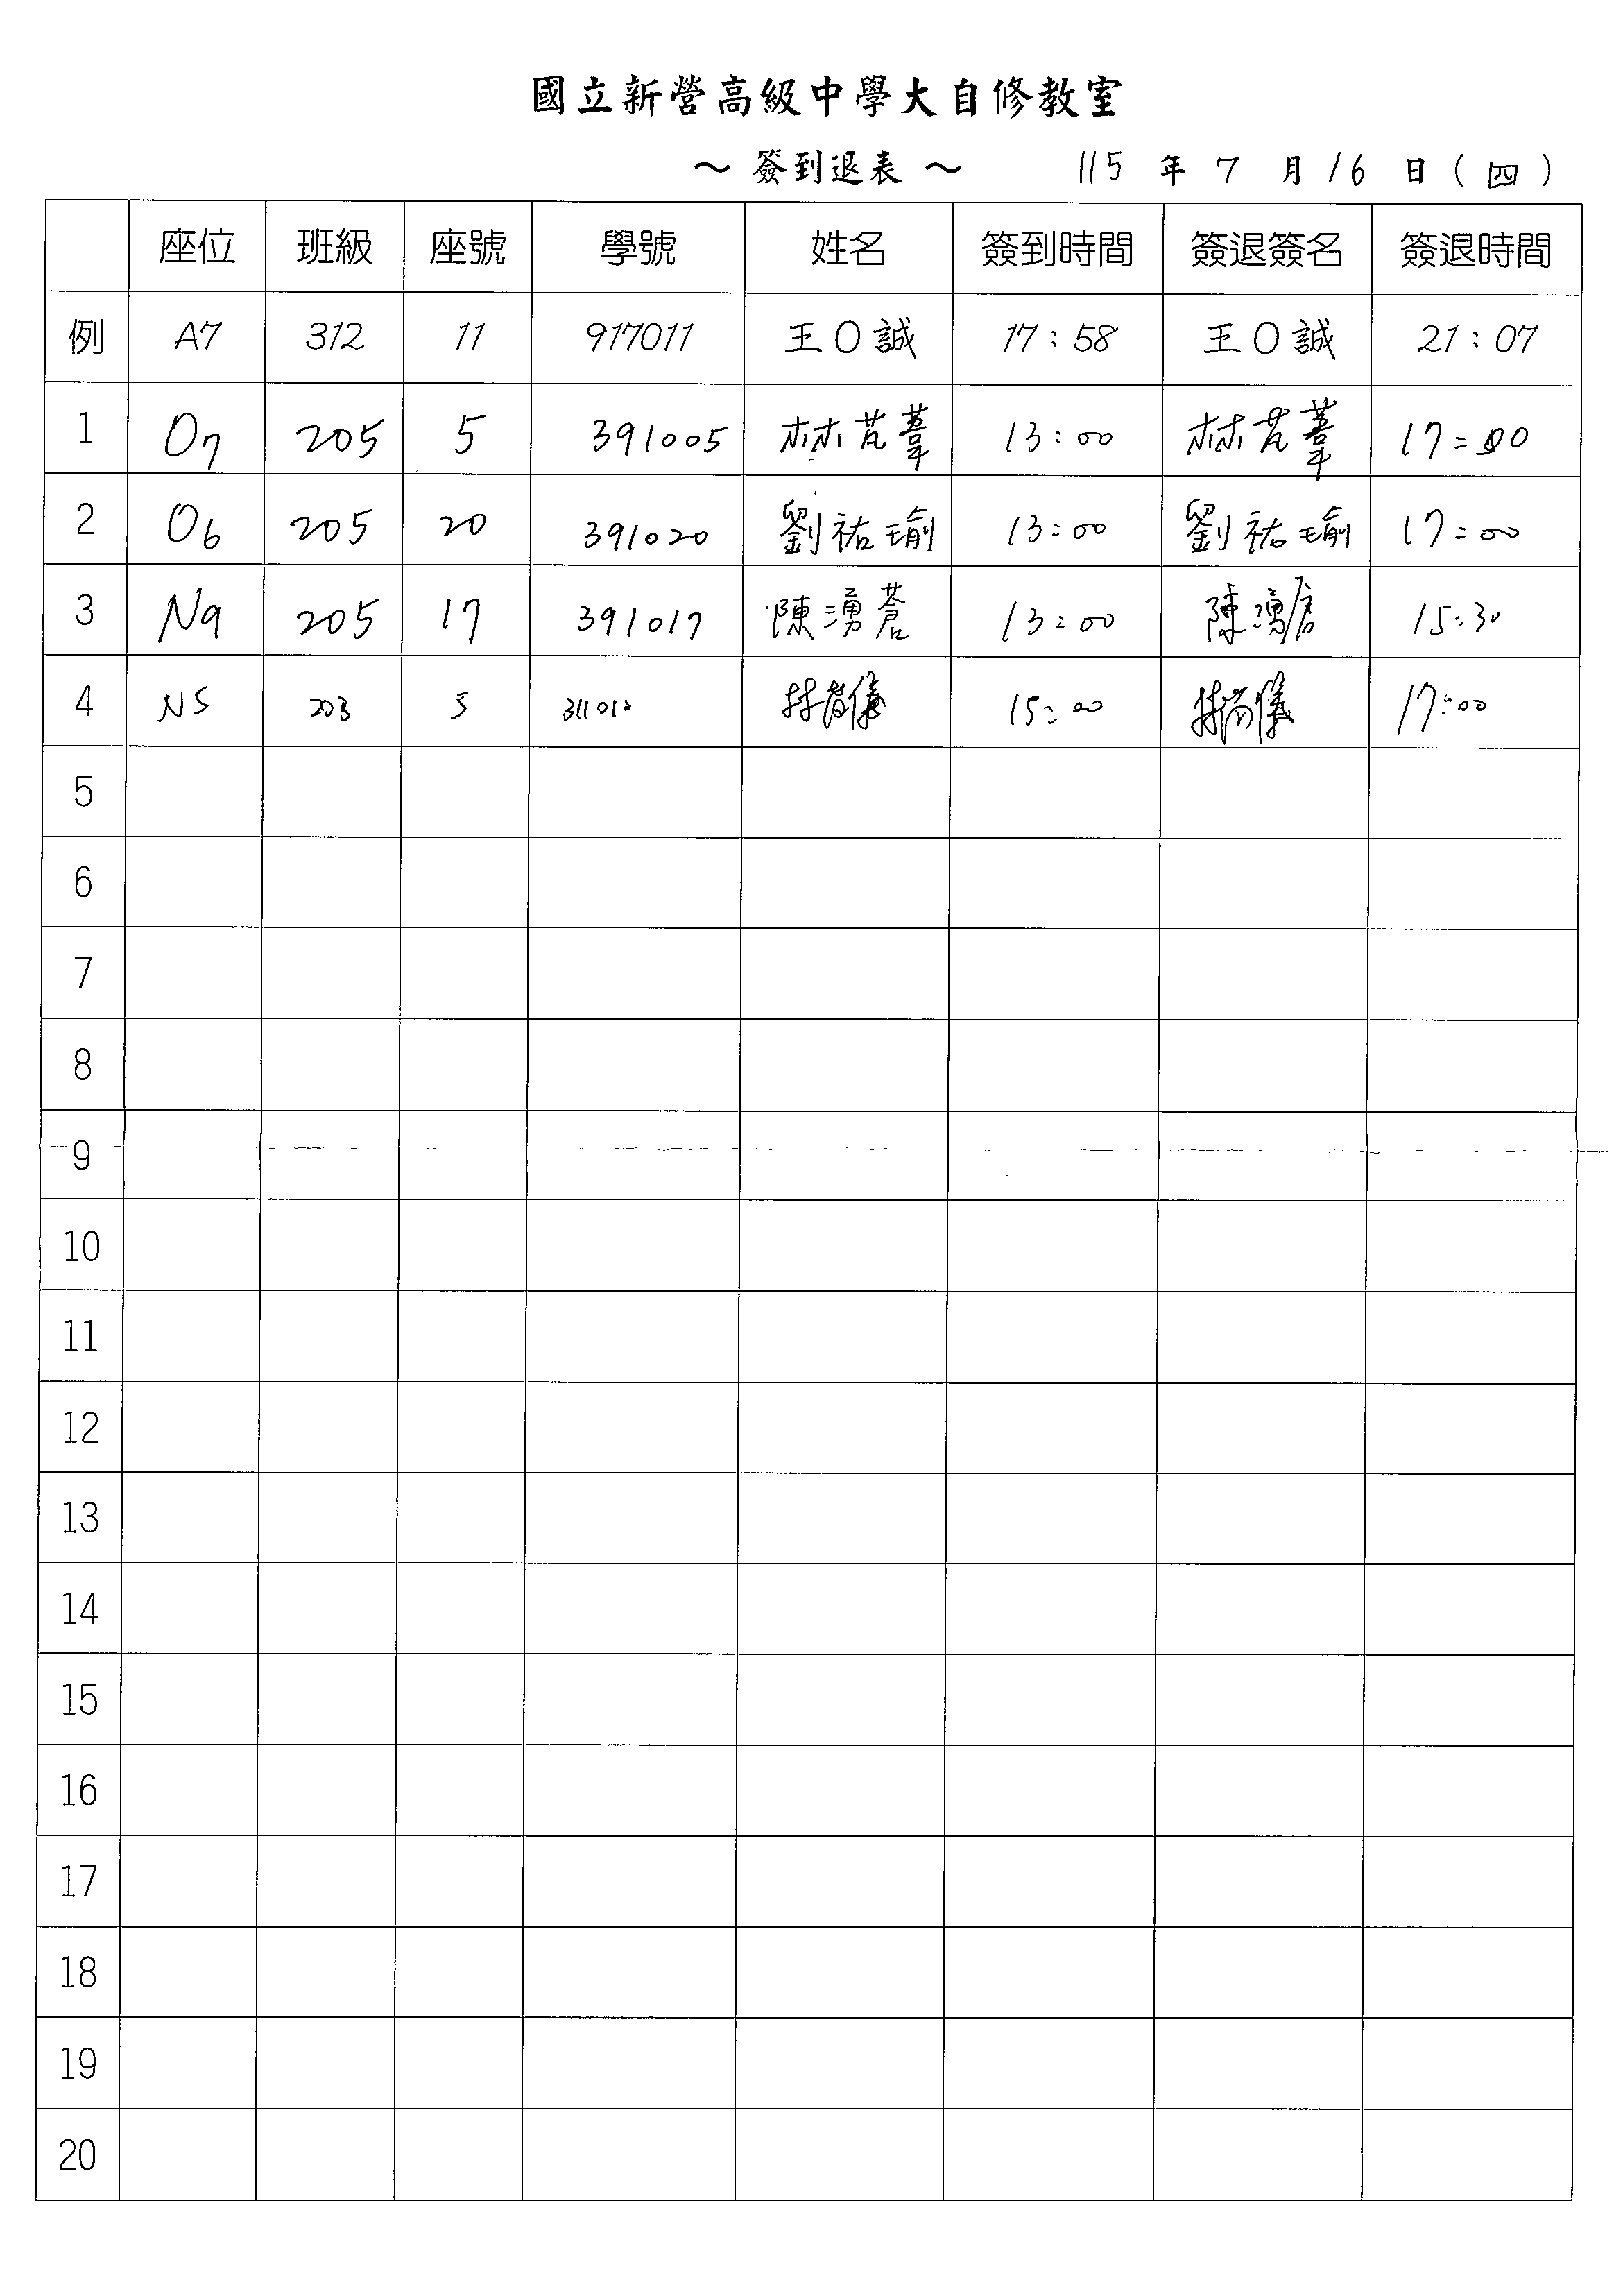 國立新營高級中學大自修教室
～ 簽到退表 ～ 115 年 7 月 16 日 ( 四 )
座位 班級 座號 學號 姓名 簽到時間 簽退簽名 簽退時間
例 A7 312 11 917011 王O誠 17:58 王O誠 21:07
1 O7 205 5 391005 林芃葦 13:00 林芃葦 17:00
2 O6 205 20 391020 劉祐瑜 13:00 劉祐瑜 17:00
3 N9 205 17 391017 陳湧蒼 13:00 陳湧 15:30
4 N5 203 15:00 17:00
5
6
7
8
9
10
11
12
13
14
15
16
17
18
19
20